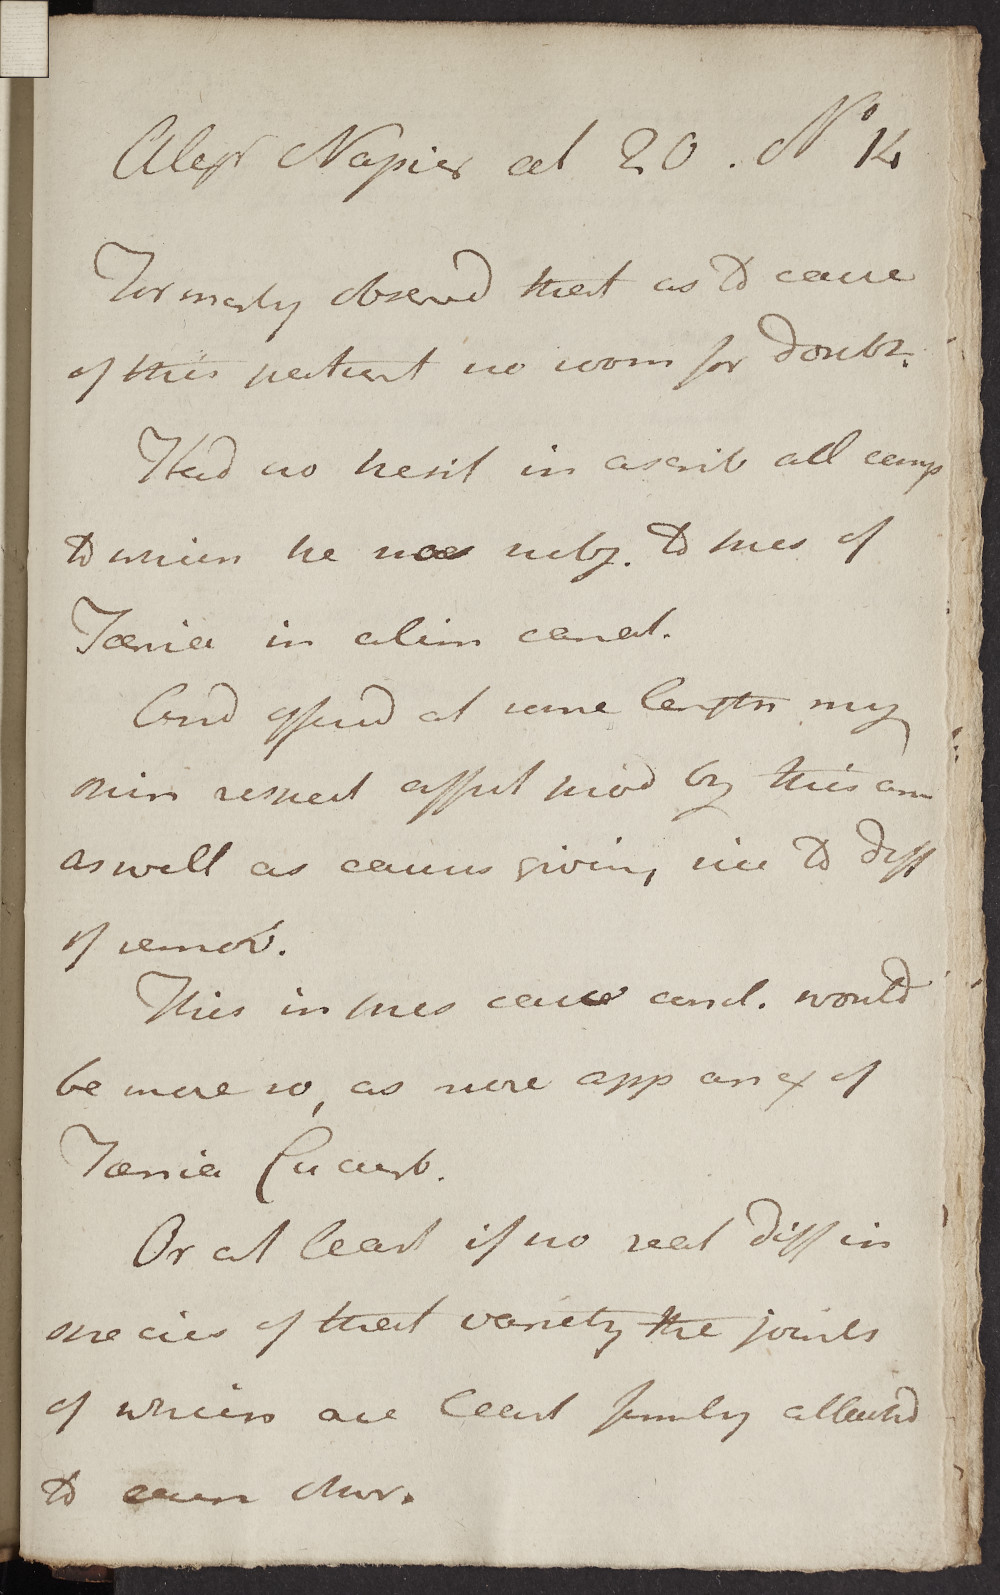 Alexr Napier aet 20. No 14
Formerly observd that as to case
of this patient no room for doubt.
Had no hesit in ascrib all comp
to which he was subj. to pres of
Taenia in alim canal.
And offerd at some length my
opin respect affect prod by this an
as well as causes giving rise to diff
of remov.
This in pres case concl. would
be more so, as here app an ex of
Taenia Cucurb.
Or at least if no real diff in
species of that variety the joints
of which are least firmly attachd
to each other.